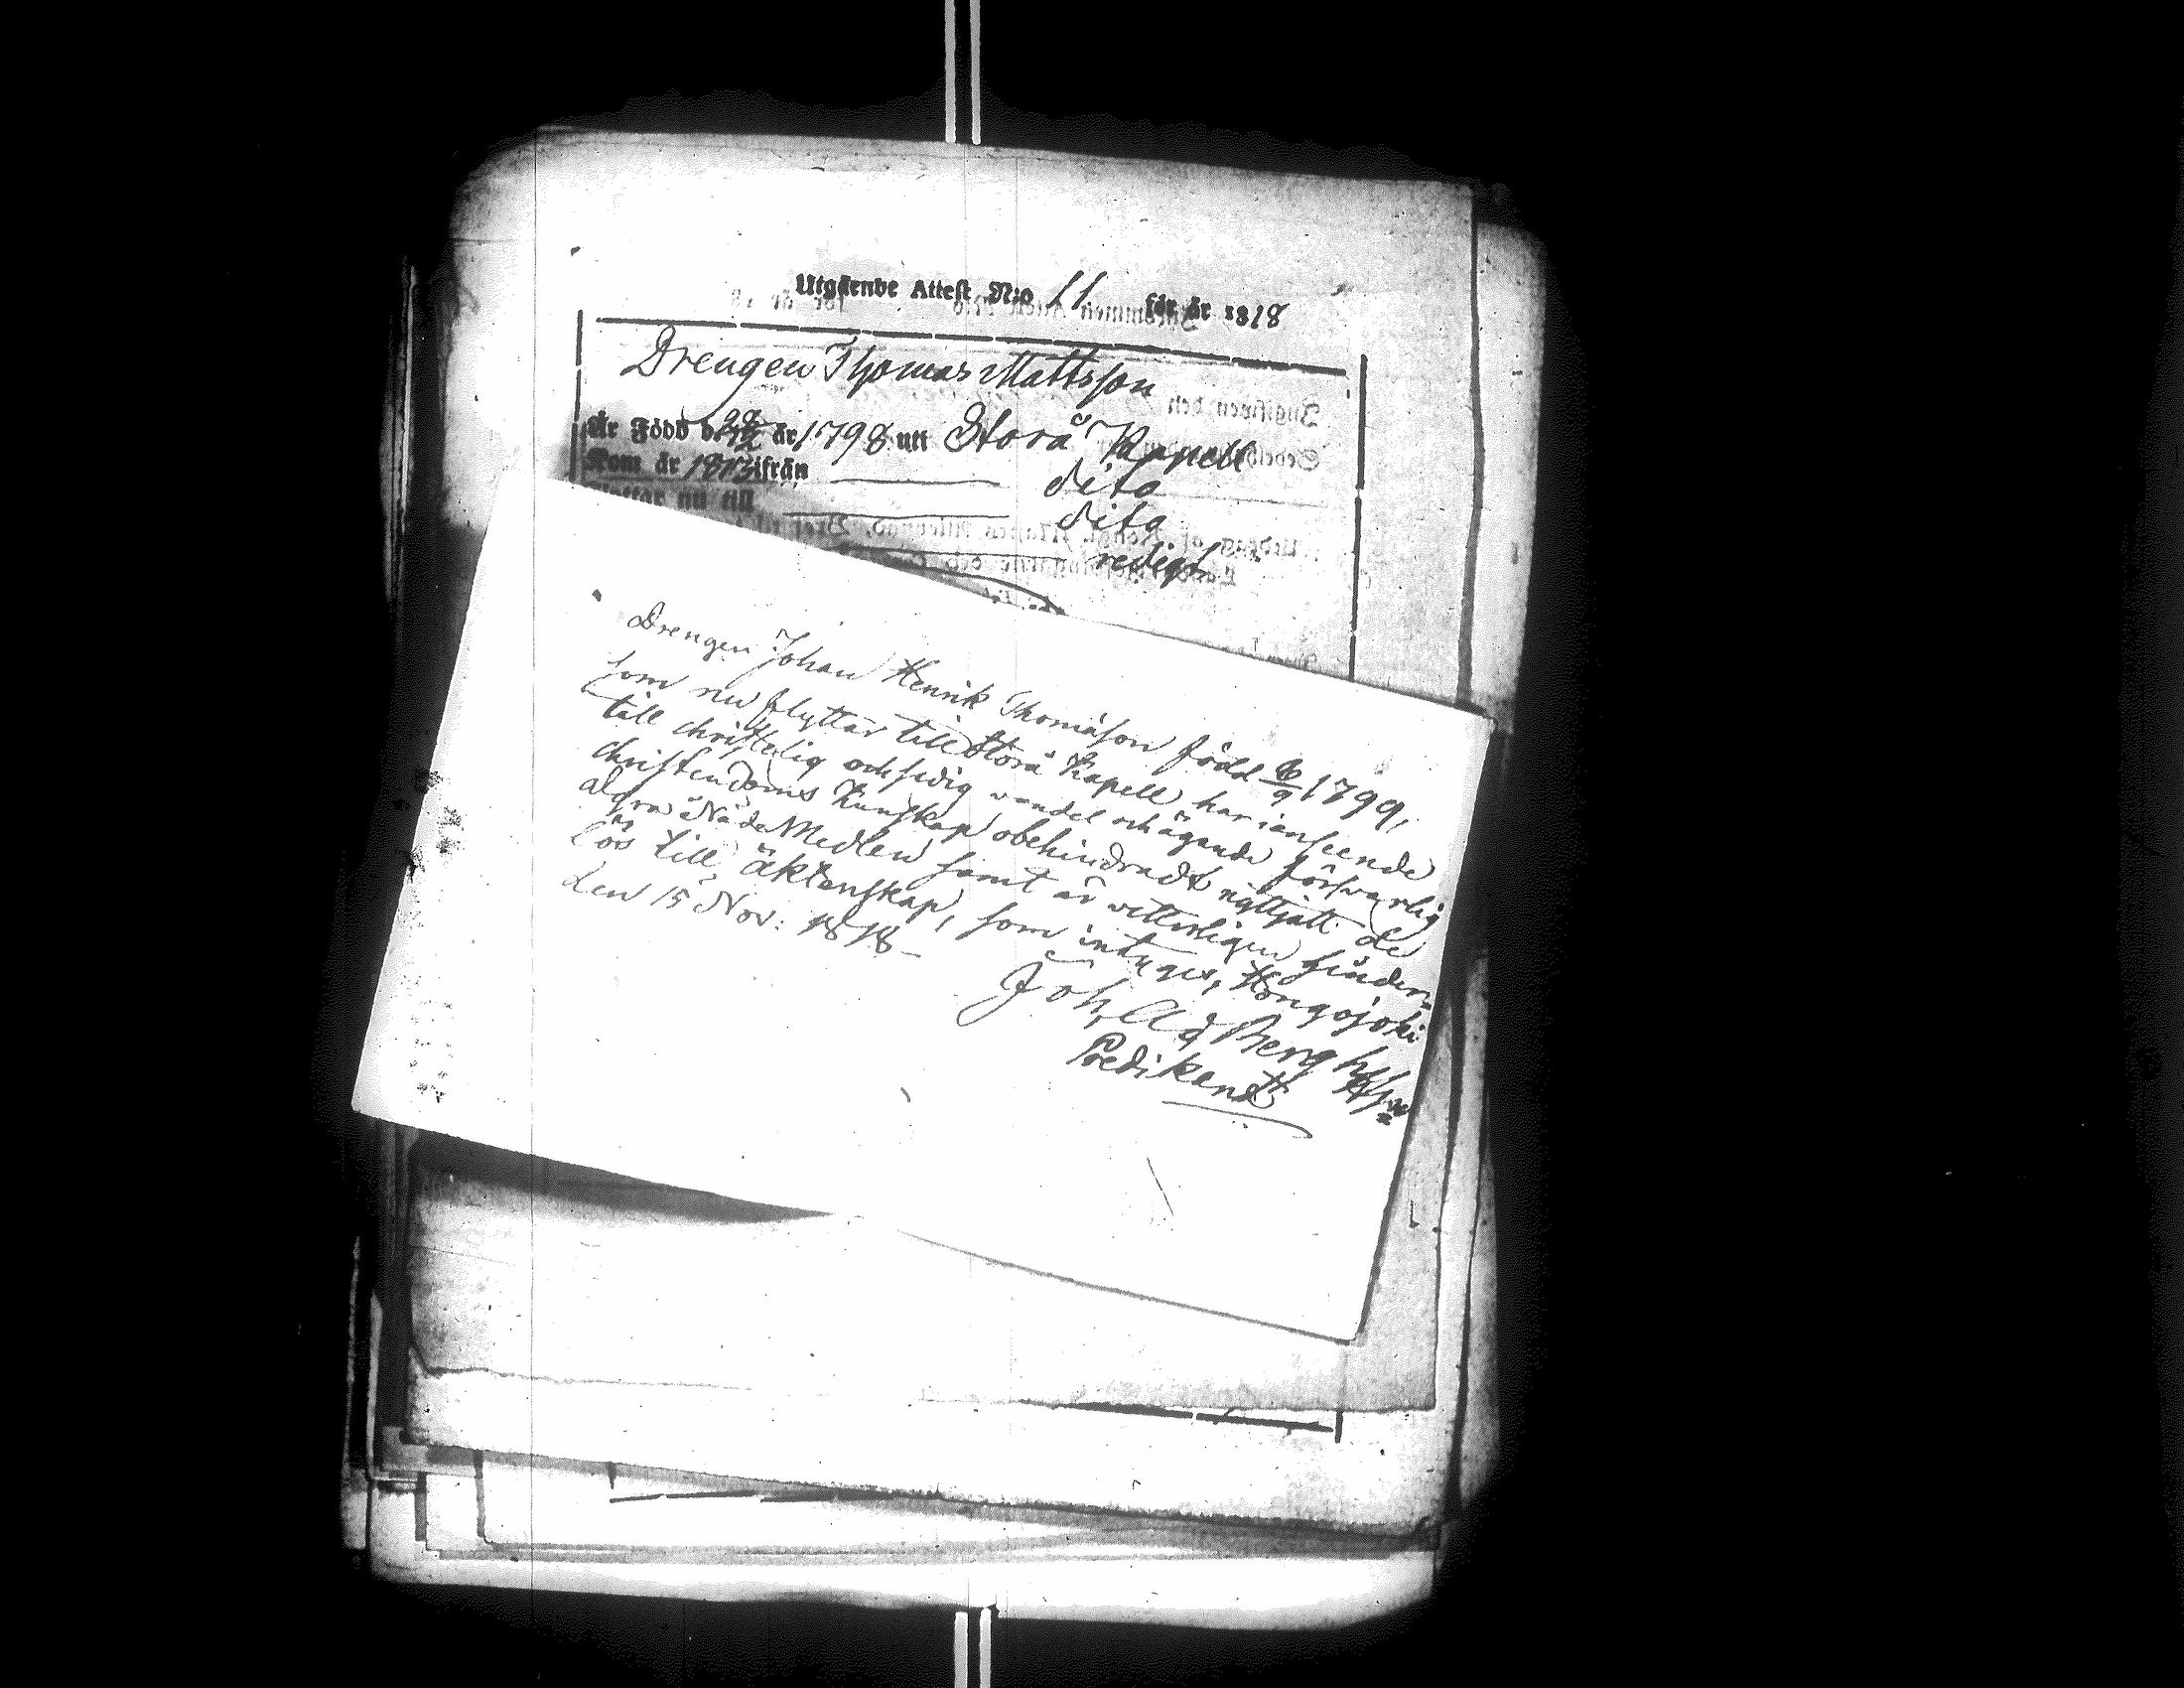 Utgående Attest N:o 11 för år 1818
Drengen Thomas Mattsson
År Född d. 28/12 år 1798 uti Storå Kappell
Kom år 1813 ifrån dito
Flyttar nu till dito
redigt
Drengen Johan Henrik Thomasson född 6/9 1799,
som nu flyttar till Storå Kapell har i anseende
till christelig och sedig wandel och ägande förswarlig
christendoms kunskap obehindradt nyttjatt de
dyra Nåda Medlen samt är vitterligen hinder-
lös till äktenskap, som intygas, Hongojoki
den 15 Nov: 1818 -
Joh. Ad Bergh
Predikant